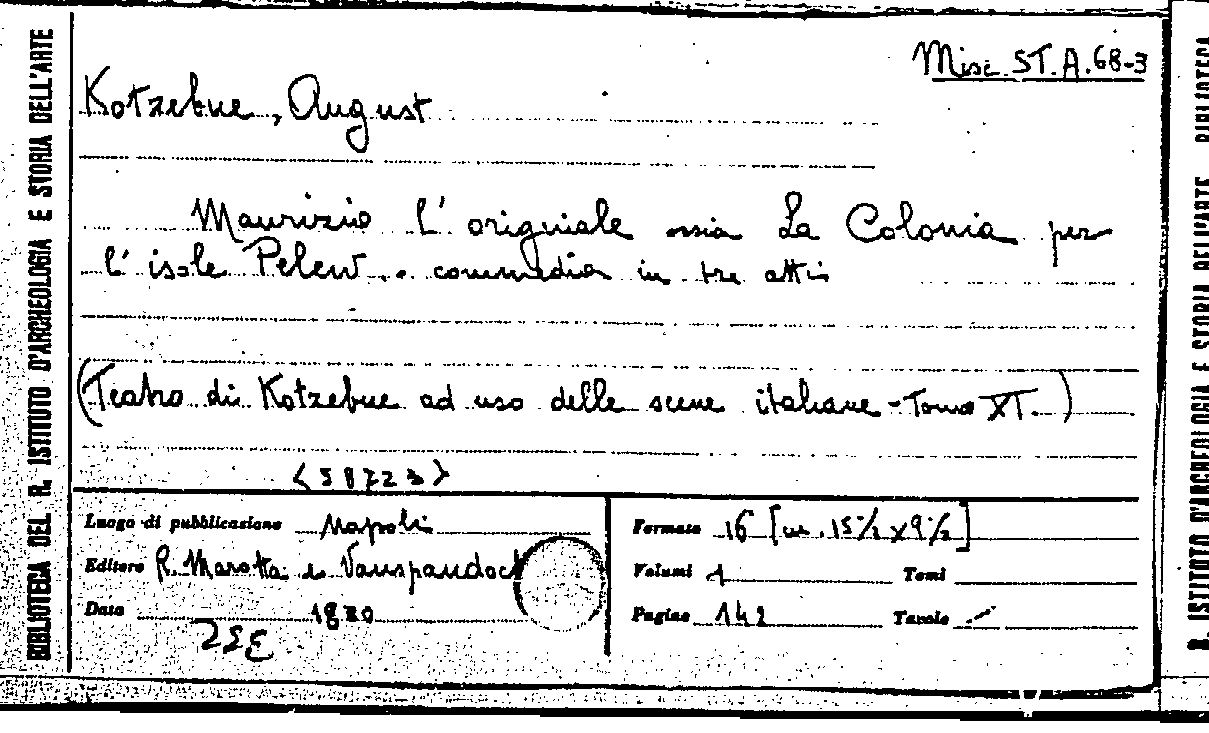 Misc. ST. A. 68-3
Kotzebue, August
Maurizio l' originale ossia La Colonia per
l' isole Pelew .. commedia in tre atti
(Teatro di Kotzebue ad uso delle scene italiane - Tomo XI.)
<58723>
Luogo di pubblicazione Napoli
Editore R. Marotta e Vanspandoch
Data 1830
Formato 16 [cm. 15 1/2 x 9 1/2]
Volumi 1 Tomi
Pagine 142 Tavole -
BIBLIOTECA DEL R. ISTITUTO D'ARCHEOLOGIA E STORIA DELL'ARTE
R. ISTITUTO D'ARCHEOLOGIA E STORIA DELL'ARTE BIBLIOTECA